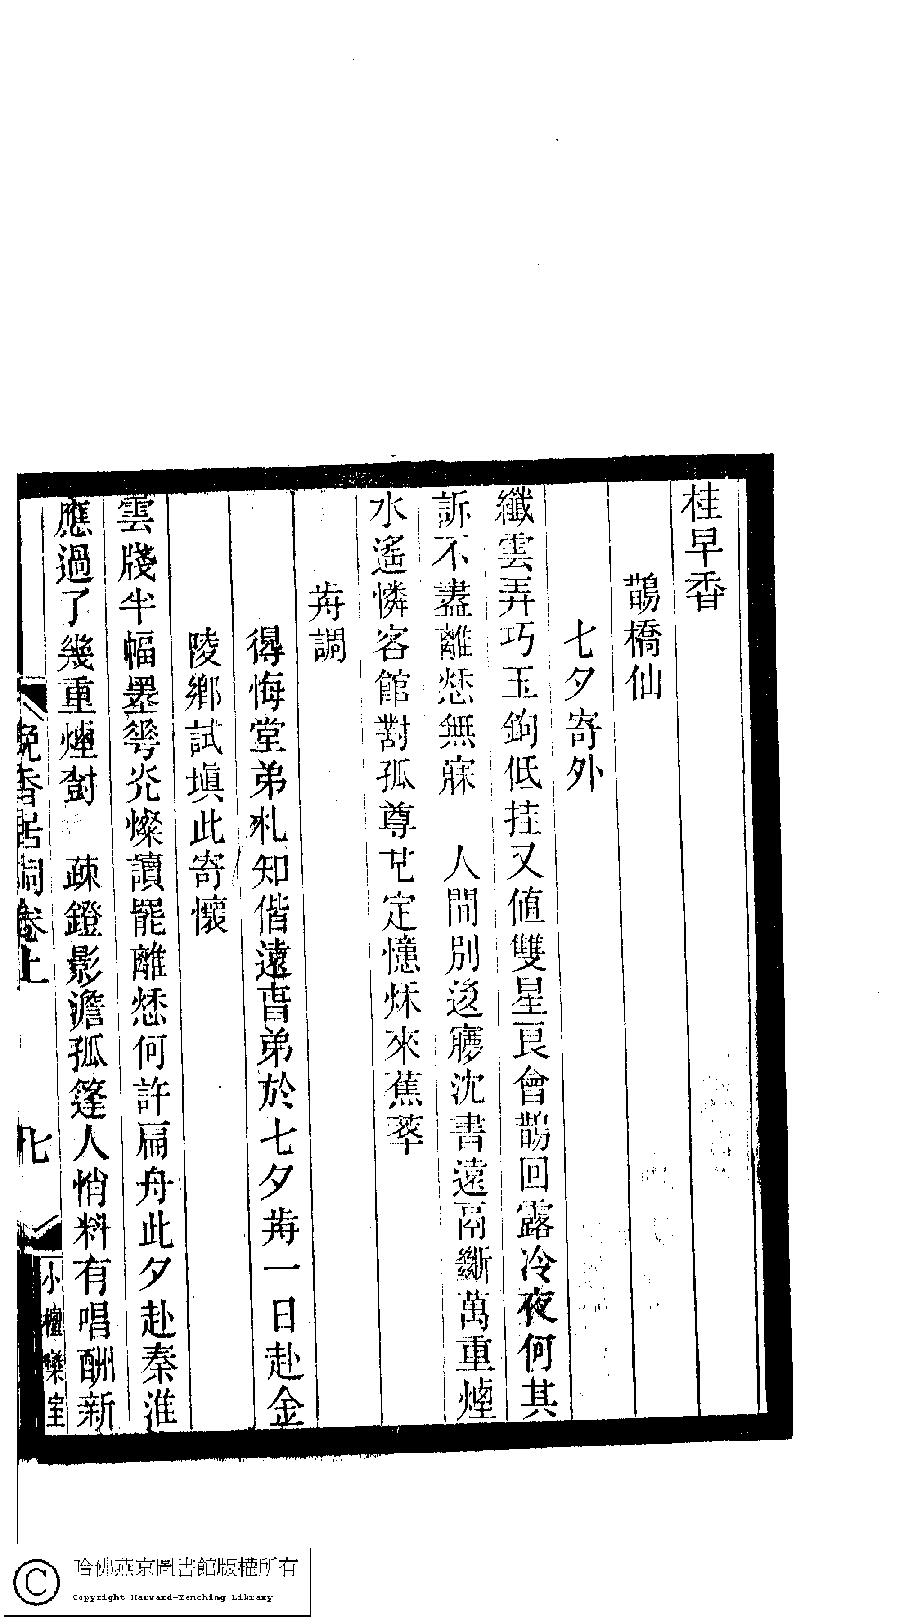 桂早香
鵲橋仙
七夕寄外
纖雲弄巧玉鉤低挂又値雙星良會鵲回露冷夜何其
訴不盡離愁無寐　人間別後寥沈書遠鬲斷萬重煙
水遙憐客館對孤尊也定憶秌來蕉萃
歬調
得悔堂弟札知偕遠香弟於七夕歬一日赴金
陵鄉試塡此寄懷
雲牋半幅墨雩炗燦讀罷離愁何許扁舟此夕赴秦淮
應過了幾重煙尌　疎鐙影澹孤篷人悄料有唱酬新
晚香居詞卷上
七
小檀欒室
哈佛燕京圖書館版權所有
Copyright Harvard-Yenching Library